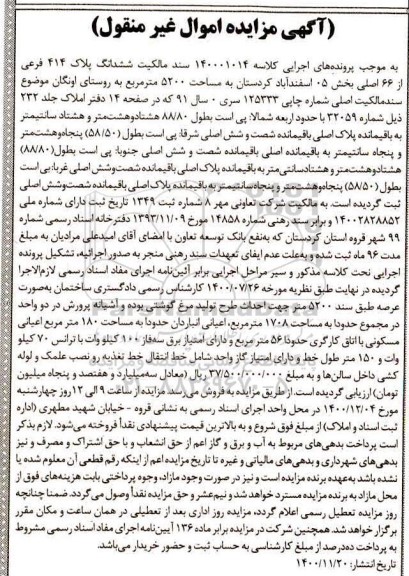 (آگهی مزایده اموال غیر منقول)
به موجب پرونده‌های اجرایی کلاسه ۱۴۰۰۰۱۰۱۴ سند مالکیت ششدانگ پلاک ۴۱۴ فرعی
از ۶۶ اصلی بخش ۰۵ اسفندآباد کردستان به مساحت ۵۲۰۰ مترمربع به روستای اونگان موضوع
سندمالکیت اصلی شماره چاپی ۱۲۵۳۳۳ سری ۰ سال ۹۱ که در صفحه ۱۴ دفتر املاک جلد ۲۳۲
ذیل شماره ۳۲۰۵۹ با حدود اربعه شمالا: پی است بطول ۸۸/۸۰ هشتادوهشت‌متر و هشتاد سانتیمتر
به باقیمانده پلاک اصلی باقیمانده شصت و شش اصلی شرقا: پی است بطول (۵۸/۵۰) پنجاه‌وهشت‌متر
و پنجاه سانتیمتر به باقیمانده اصلی باقیمانده شصت و شش اصلی جنوبا: پی است بطول(۸۸/۸۰)
هشتادوهشت‌متر و هشتادسانتی‌متر به باقیمانده پلاک اصلی باقیمانده شصت‌وشش اصلی غربا:پی است
بطول (۵۸/۵۰) پنجاه‌وهشت‌متر و پنجاه سانتیمتر به باقیمانده پلاک اصلی باقیمانده شصت‌وشش اصلی
ثبت گردیده است. به مالکیت شرکت تعاونی مهر ۸ شماره ثبت ۱۳۴۹ تاریخ ثبت دارای شماره ملی
۱۴۰۰۲۸۲۸۸۵۲ و برابر سند رهنی شماره ۱۴۸۵۸ مورخ ۱۳۹۳/۱۱/۰۹ دفترخانه اسناد رسمی شماره
۹۹ شهر قروه استان کردستان که به‌نفع بانک توسعه تعاون با امضای آقای امیدعلی مرادیان به مبلغ
مدت ۹۶ ماه ثبت شده و به‌علت عدم ایفای تعهدات سند رهنی منجر به صدور اجرائیه، تشکیل پرونده
اجرایی تحت کلاسه مذکور و سیر مراحل اجرایی برابر آئین‌نامه اجرای مفاد اسناد رسمی لازم‌الاجرا
گردیده در نهایت طبق نظریه مورخه ۱۴۰۰/۰۷/۲۶ کارشناس رسمی دادگستری ساختمان به‌صورت
عرصه طبق سند ۵۲۰۰ مترجهت احداث طرح تولید مرغ گوشتی بوده و آشیانه پرورش در دو واحد
در مجموع حدودا به مساحت ۱۷۰۸ مترمربع، اعیانی انباردان حدودا به مساحت ۱۸۰ متر مربع اعیانی
مسکونی با اتاق کارگری حدودا ۵۶ متر مربع و دارای امتیاز برق سه‌فاز ۱۰۰ کیلو وات با ترانس ۷۰ کیلو
وات و ۱۵۰ متر طول خط و دارای امتیاز گاز واحد شامل خط انتقال خط تغذیه رو نصب علمک و لوله
کشی داخل سالن‌ها و به مبلغ ۳۷/۵۰۰/۰۰۰/۰۰۰ ریال (معادل سه‌میلیارد و هفتصد و پنجاه میلیون
تومان) ارزیابی گردیده است. از طریق مزایده به فروش می‌رسد. مزایده از ساعت ۹ الی ۱۲ روز چهارشنبه
مورخ ۱۴۰۰/۱۲/۰۴ در محل واحد اجرای اسناد رسمی به نشانی قروه - خیابان شهید مطهری (اداره
ثبت اسناد و املاک) از مبلغ فوق شروع و به بالاترین قیمت پیشنهادی نقداً فروخته می‌شود. لازم بذکر
است پرداخت بدهی‌های مربوط به آب و برق و گاز اعم از حق انشعاب و یا حق اشتراک و مصرف و نیز
بدهی‌های شهرداری و بدهی‌های مالیاتی و غیره تا تاریخ مزایده اعم از اینکه رقم قطعی آن معلوم شده یا
نشده باشد به‌عهده برنده مزایده است و نیز در صورت وجود مازاد، وجوه پرداختی بابت هزینه‌های فوق از
محل مازاد به برنده مزایده مسترد خواهد شد و نیم‌عشر و حق مزایده نقداً وصول می‌گردد. ضمنا چنانچه
روز مزایده تعطیل رسمی اعلام گردد، مزایده روز اداری بعد از تعطیلی در همان ساعت و مکان مقرر
برگزار خواهد شد. همچنین شرکت در مزایده برابر ماده ۱۳۶ آیین‌نامه اجرای مفاد اسناد رسمی مشروط
به پرداخت ده‌درصد از مبلغ کارشناسی به حساب ثبت و حضور خریدار می‌باشد.
تاریخ انتشار: ۱۴۰۰/۱۱/۲۰